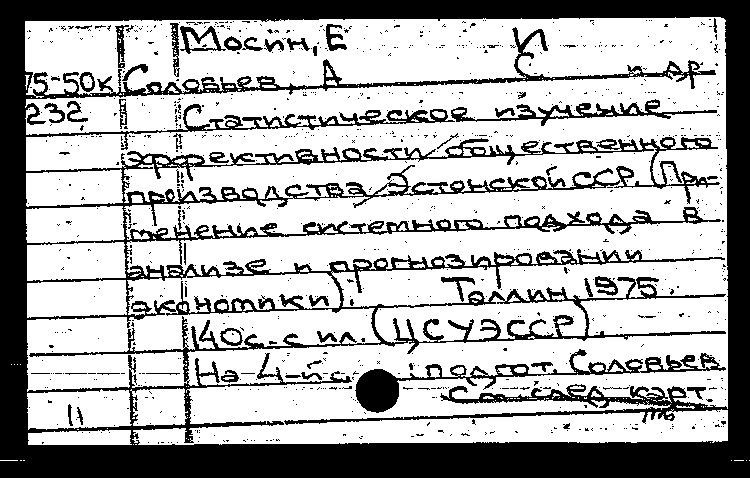 Мосин, Е И
75-50к Соловьев, А С и др
232 Статистическое изучение
эффективности общественного
производства Эстонской ССР. (При-
менение системного подхода в
анализе и прогнозировании
экономики). Таллин, 1975.
140 с. с ил. (ЦСУ ЭССР).
На 4-й с. : подгот. Соловьев
См след карт.
11